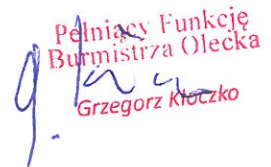 Pełniący Funkcję
Burmistrza Olecka
Grzegorz Kłoczko